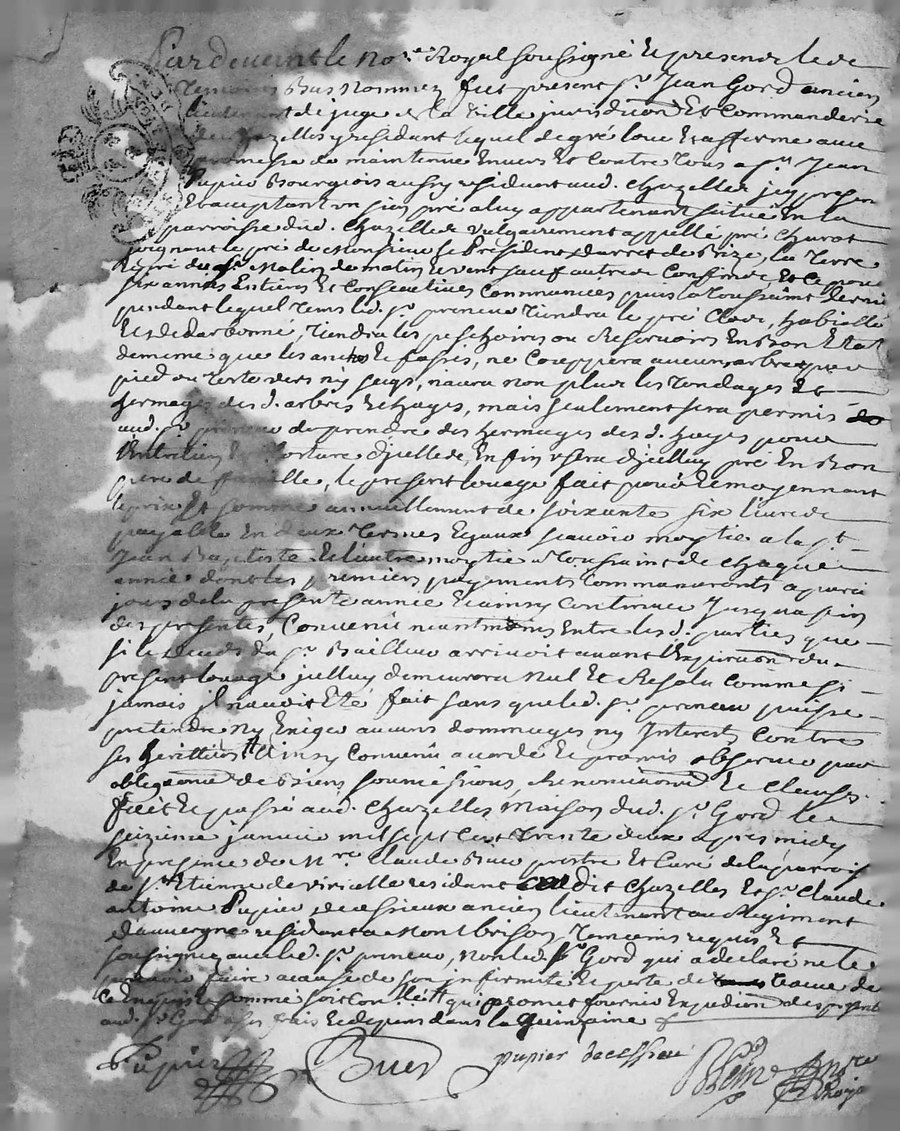 Pardevant le no.re Royal soussigné Et presence le de
Temoins Bas Nommez fut present s.r Jean Gord ancien
Lieutenant de juge de la Ville jurisdi on Et Commanderie
de Chazelles y residant lequel de gré loue Et afferme avec
promesse de maintenue Envers Et Contre Tous a s.r Jean
Pupier Bourgeois aussy residant aud. Chazelles jcy presen
Et acceptant un sien pré a luy appartenant situé En la
parroisse dud. Chazelle vulgairement appellé pré Charat
joignant le pré de Monsieur le President de Prize, la Terre
Et pré du s.r Molin de matin Et vent sauf autre Confins Et Ce pour
six années Entieres Et Consecutives Commancées puis la Toussaint derni
pendant lequel Tems led. s.r preneur Tiendra le pré Clos,
Tiendra les peschoires ou Reservoirs En Bon Etat
de meme que les Et fossés, ne Couppera aucun arbre par
pied ou Teste vers ny secqs, n'aura non plus les Tondages Et
hermages des d. arbres Et hayes, mais seulement sera permis
aud. s.r preneur de prendre des hermages des d. hayes pour
l'Entretien Et Clorture d'jcelles, Enfin usera d'jcelluy pré En Bon
pere de famille, le present louage fait pour Et moyennant
le prix Et somme annuellement de soixante six livres
payable En deux Termes Egaux scavoir moytié a la s.t
Jean Baptiste Et l'autre moytié a Toussaint de Chaque
année dont les premiers payements Commanceronts a pareil
jours de la presente année Et ainsy Continuer jusqu'a fin
des presentes, Convenu neantmoins Entre les d. parties que
si le deceds du s.r Bailleur arrivoit avant l'Expiration du
present louage jcelluy demeurera Nul Et Resolu Comme si
jamais jl n'avoit Eté fait sans que led. s.r preneur puisse
pretendre ny Exiger aucuns dommages ny Interests Contre
ses heritiers Ainsy Convenu accordé Et promis observer par
obligeance de Biens soumissions, Renonciations Et Clauses
Fait Et passé aud. Chazelles Maison dud. s.r Gord le
seizieme janvier mil sept Cent Trente deux apres midy
En presence de M.re Claude Buer prestre Et Curé de la parroisse
de s.t Etienne de Viricelle residant audit Chazelles Et s.r Claude
antoine Pupier de Cessieux ancien lieutenant au Regiment
d'auvergne residant a Montbrison, Temoins requis Et
soussignez avec led. s.r preneur, Non led. s.r Gord qui a declaré ne le
pouvoir faire a cause de son infirmité Et perte de veue de
Ce Enquis Et sommé qui promet fournir Expedition des present
aud. s.r Gord a ses frais Et depens dans la quinzaine
Pupier
Buer
pupier decessieu
Reine n.re